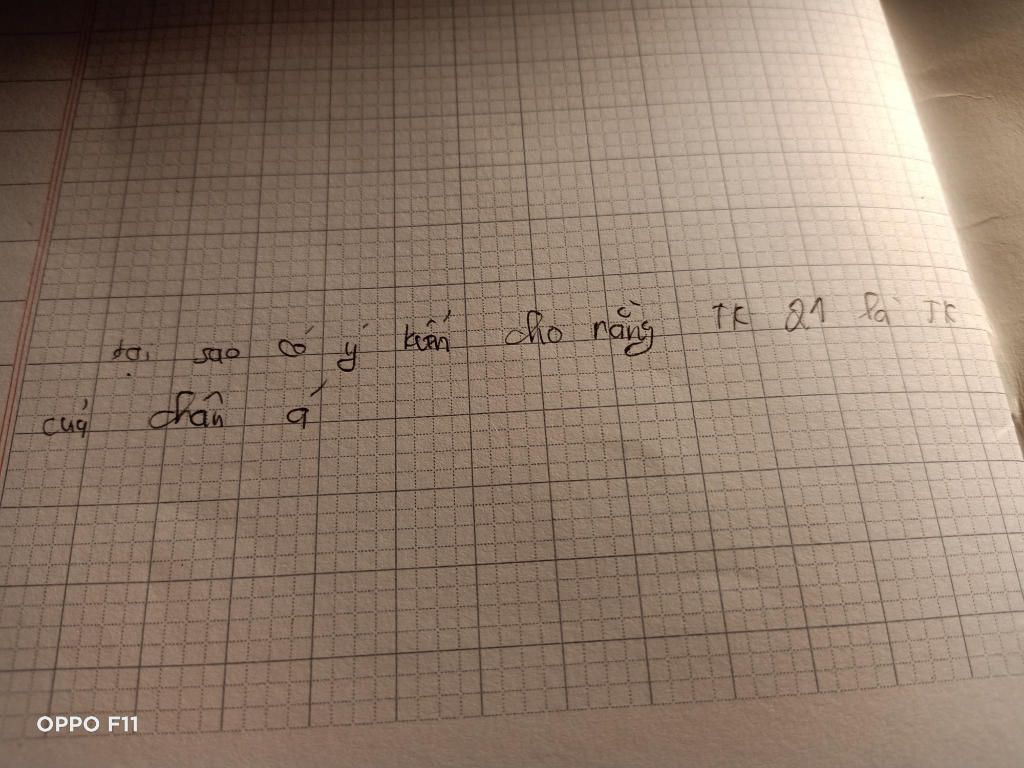 tại sao có ý kiến cho rằng TK 21 là TK
của chấn á
OPPO F11